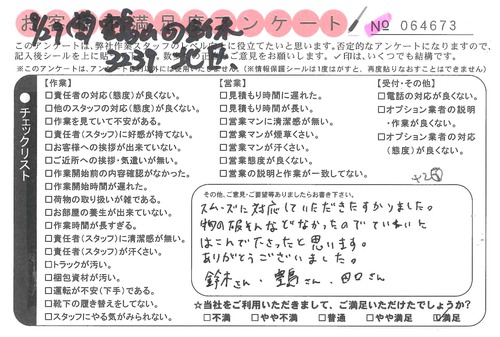 お客様満足度アンケート No 064673
このアンケートは、弊社作業スタッフのレベル向上に役立てたいと思います。否定的なアンケートになりますので、
記入後シールを上に貼
ご意見をお願いします。✓印は、いくつでも結構です。
※このアンケートは、
以外には使用いたしません。(※情報保護シールは1度はがすと、再度貼りなおすことはできません)
チェックリスト
【作業】
□責任者の対応(態度)が良くない。
□他のスタッフの対応(態度)が良くない。
□作業を見ていて不安がある。
□責任者(スタッフ)に好感が持てない。
□お客様への挨拶が出来ていない。
□ご近所への挨拶・気遣いが無い。
□作業開始前の内容確認がなかった。
□作業開始時間が遅れた。
□荷物の取り扱いが雑である。
□お部屋の養生が出来ていない。
□作業時間が長すぎる。
□責任者(スタッフ)に清潔感が無い。
□責任者(スタッフ)が汗くさい。
□トラックが汚い。
□梱包資材が汚い。
□運転が不安(下手)である。
□靴下の履き替えをしてない。
□スタッフにやる気がみられない。
【営業】
□見積もり時間に遅れた。
□見積もり時間が長い。
□営業マンに清潔感が無い。
□営業マンが煙草くさい。
□営業マンが汗くさい。
□営業態度が良くない。
□営業の説明と作業が一致してない。
【受付・その他】
□電話の対応が良くない。
□オプション業者の説明
・作業が良くない。
□オプション業者の対応
(態度)が良くない。
その他、ご意見・ご要望等ありましたらお書き下さい。
スムーズに対応していただきたすかりました。
物の破そんなどなかったのでていねいに
はこんで下さったと思います。
ありがとうございました。
鈴木さん・豊島さん・田口さん
☆当社をご利用いただきまして、ご満足いただけたでしょうか?
□不満 □やや不満 □普通 □やや満足 ☑満足